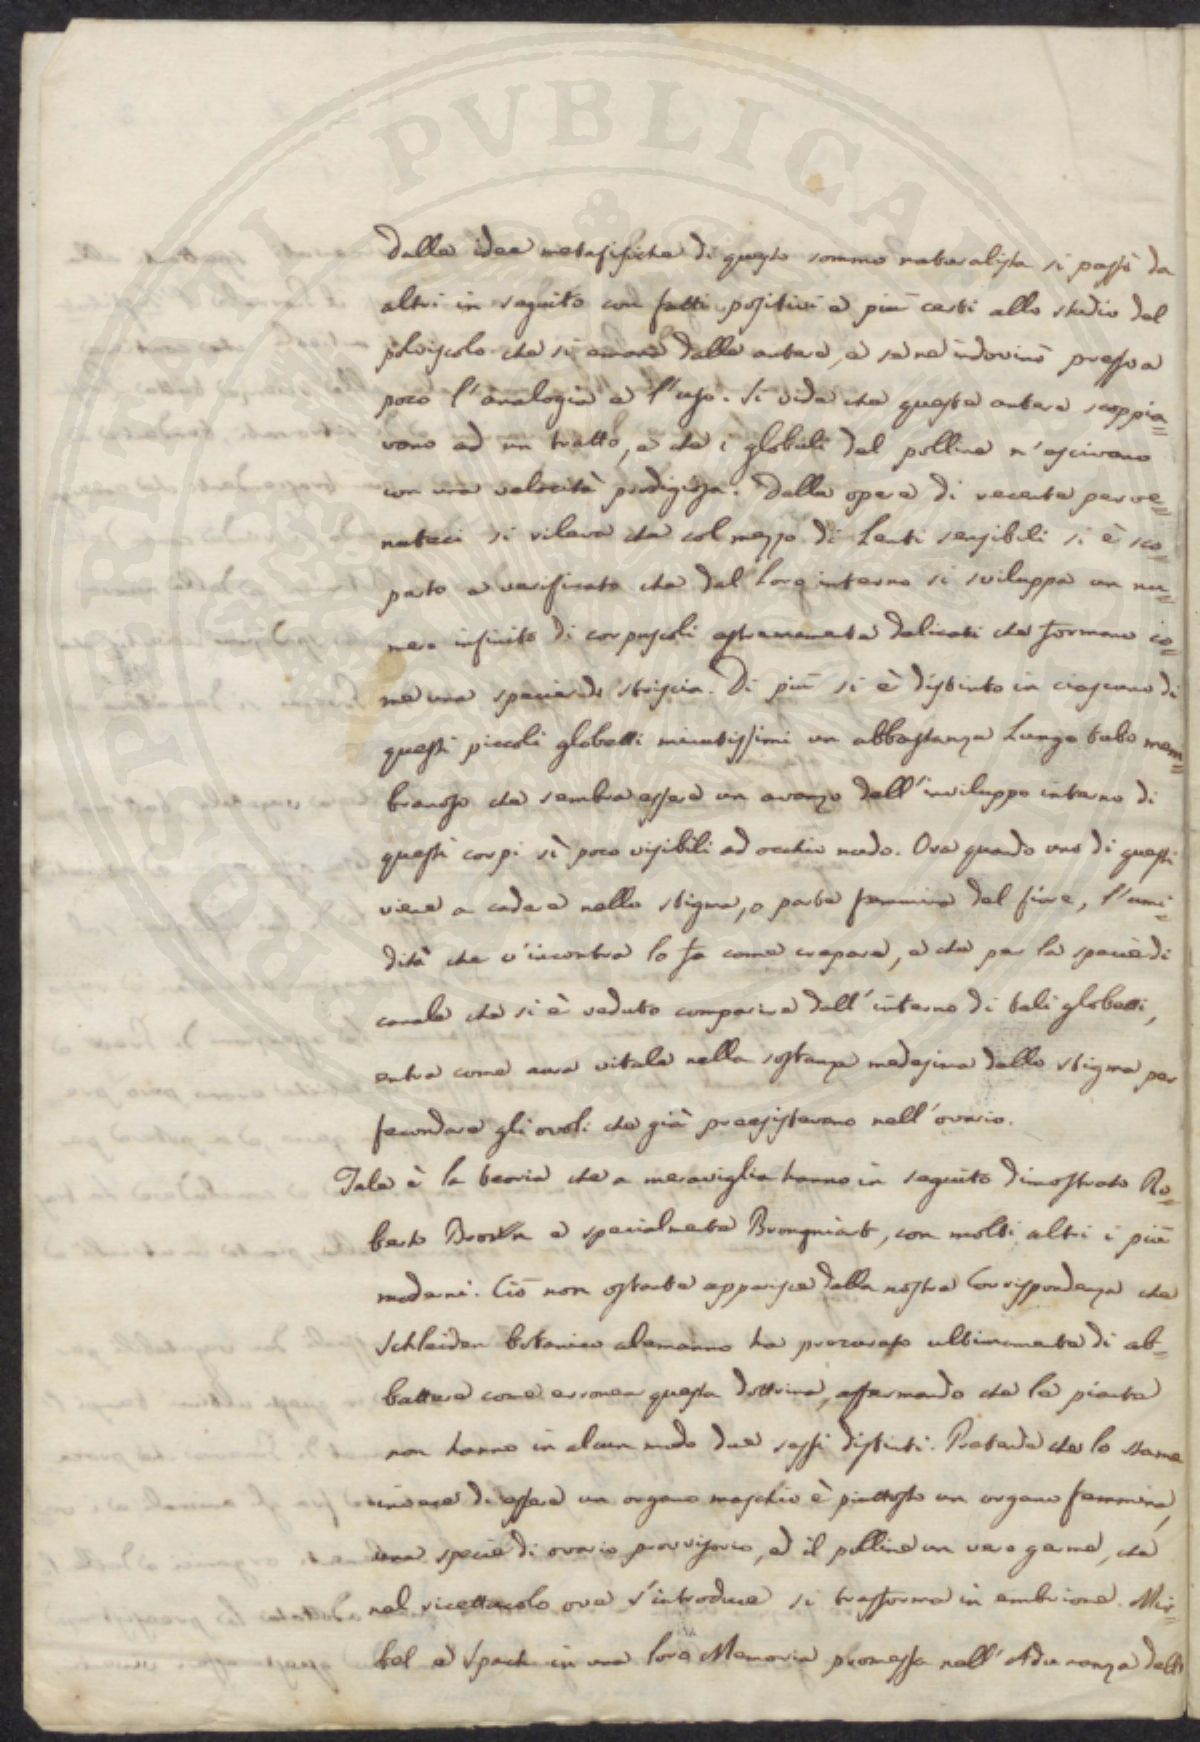 Dalle idee metafisiche di questo sommo naturalista si passò da
altri in seguito con fatti positivi e più certi allo studio del
polviscolo che si emana dalle antere, e se ne indovinò presso a
poco l'analogia e l'uso. Si vide che queste antere scoppia=
vano ad un tratto, e che i globuli del polline n'escivano
con una velocità prodigiosa. Dalle opere di recente perve=
nuteci si rileva che col mezzo di Lenti sensibili si è sco=
perto e verificato che dal loro interno si sviluppa un nu=
mero infinito di corpuscoli estremamente delicati che formano co=
me una specie di striscia. Di più si è distinto in ciascuno di
questi piccoli globetti minutissimi un abbastanza Lungo tubo mem=
branoso che sembra essere un avanzo dell'inviluppo interno di
questi corpi sì poco visibili ad occhio nudo. Ora quando uno di questi
viene a cadere nello stigma, o parte femmina del fiore, l'umi=
dità che v'incontra lo fa come crepare, e che per la specie di
canale che si è veduto comparire dall'interno di tali globetti,
entra come aura vitale nella sostanza medesima dello stigma per
fecondare gli ovoli che già preesistevano nell'ovario.
Tale è la teoria che a meraviglia hanno in seguito dimostrato Ro=
berto Brown e specialmente Brongniart, con molti altri i più
moderni. Ciò non ostante apparisce dalla nostra Corrispondenza che
Schleiden botanico alemanno ha procurato ultimamente di ab=
battere come erronea questa dottrina, affermando che le piante
non hanno in alcun modo due sessi distinti. Pretende che lo stame
invece di essere un organo maschio è piuttosto un organo femmina,
una specie di ovario provvisorio, ed il polline un vero germe, che
nel ricettacolo ove s'introduce si trasforma in embrione. Mir=
bel e Spach in una loro Memoria promessa nell'Adunanza delli